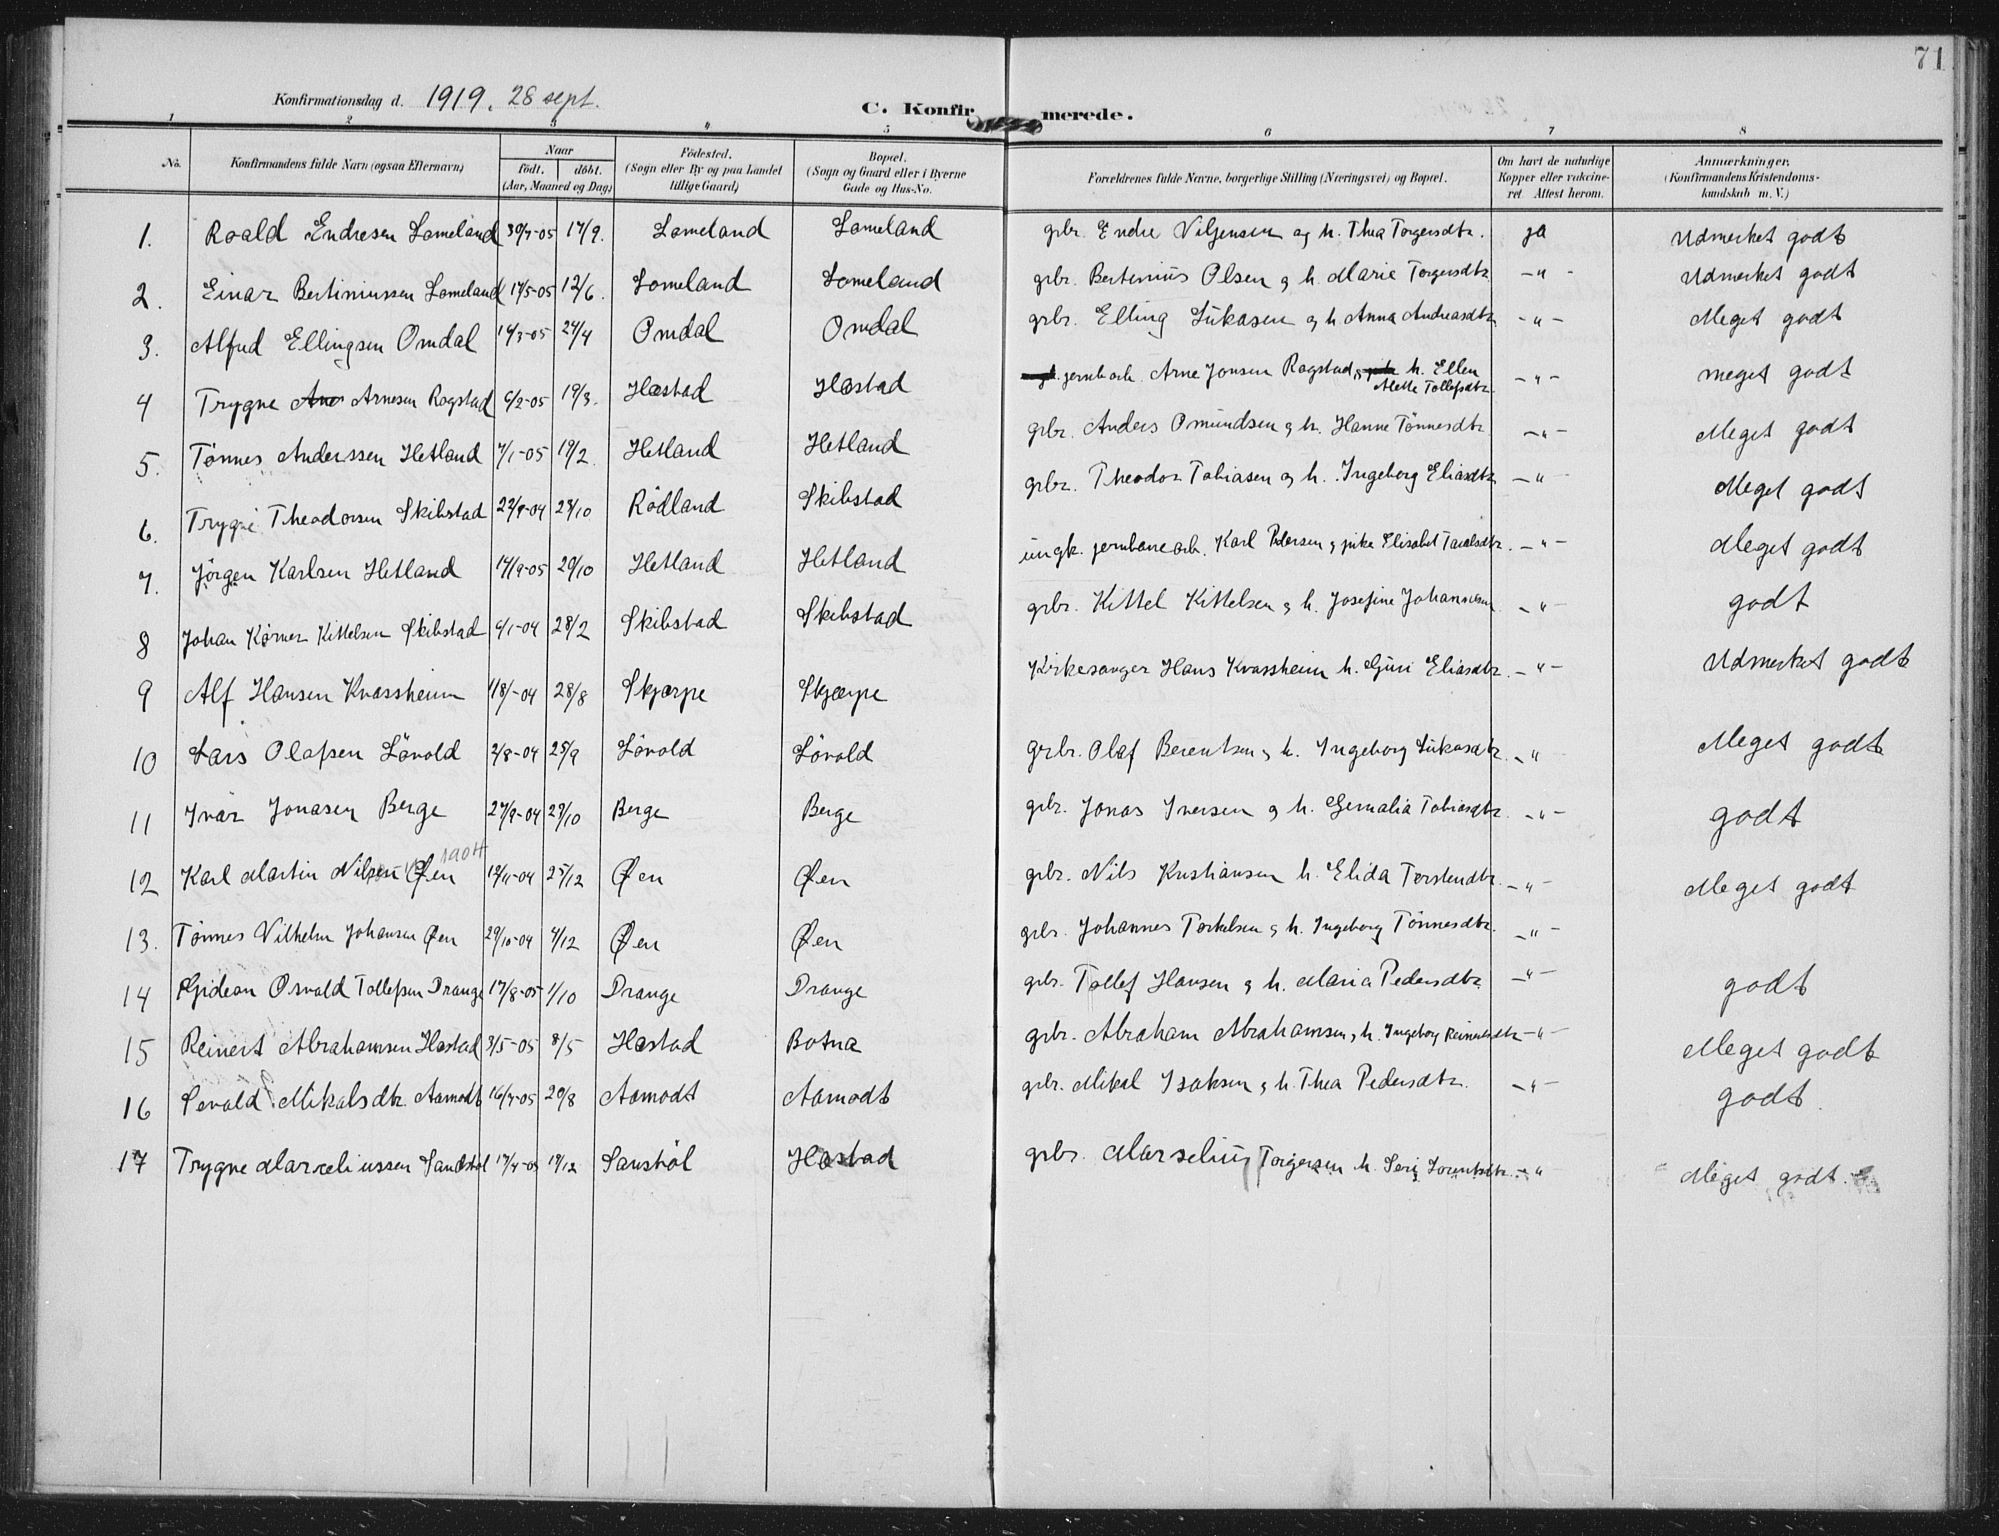 71
Konfirmationsdag d. 1919. 28 sept.
C. Konfirmerede.
1 2 3 4 5 6 7 8
No. Konfirmandens fulde Navn (ogsaa Efternavn) Naar født. døbt. (Aar, Maaned og Dag) Födested. (Sogn eller By og paa Landet tillige Gaard) Bopæl. (Sogn og Gaard eller i Byerne Gade og Hus-No. Forældrenes fulde Navne, borgerlige Stilling (Næringsvei) og Bopæl. Om havt de naturlige Kopper eller vaccineret. Attest herom. Anmærkninger. (Konfirmandens Kristendomskundskab m. V.)
1. Roald Endresen Lomeland 30/7-05 17/9. Lomeland Lomeland grbr. Endre Viljensen og h. Thea Torgersdtr. ja Udmerket godt
2. Einar Bertiniussen Lomeland 17/5-05 12/6. Lomeland Lomeland grbr. Bertinius Olsen og h. Marie Torgersdtr. -"- Udmerket godt
3. Alfred Ellingsen Omdal 14/3-05 24/4 Omdal Omdal grbr. Elling Lukasen og h. Anna Andreasdtr. -"- Meget godt
4 Trygve Arnesen Rogstad 6/2-05 19/3. Hæstad Hæstad jernb. arb. Arne Jonsen Rogstad og h. Ellen Mette Tollefsdtr. -"- meget godt
5. Tønnes Anderssen Hetland 7/1-05 19/2. Hetland Hetland grbr. Anders Omundsen og h. Hanne Tönnesdtr. -"- Meget godt
6. Trygve Theodorsen Skibstad 22/9-04 28/10 Rödland Skibstad grbr. Theodor Tobiasen og h. Ingeborg Eliasdtr. -"- Meget godt
7. Jörgen Karlsen Hetland 14/9-05 29/10 Hetland Hetland ungk. jernbanearb. Karl Pedersen og pike Elisabet -"- Meget godt
8 Johan Kørner Kittelsen Skibstad 6/1-04 28/2 Skibstad Skibstad grbr. Kittel Kittelsen og h. Josefine -"- godt
9 Alf Hansen Kvassheim 28/8 Skjærpe Skjærpe Kirkesanger Hans Kvassheim h. Guri Eliasdtr. -"- Udmerket godt
10 Lars Olafsen Lövold 2/8-04 25/9 Lövold Lövold grbr. Olaf Berentsen og h. Ingeborg Lukasdtr. -" Meget godt
11 Ivar Jonasen Berge 27/9-04 29/10 Berge Berge grbr. Jonas Iversen og h. Gemalia Tobiasdtr. -"- godt
12 Karl Martin Nilsen Øen 1904 12/11-04 25/12 Øen Øen grbr. Nils Kristiansen h. Elida Terstendtr. -"- Meget godt
13. Tønnes Vilhelm Johansen Øen 29/10-04 4/12 Øen Øen grbr. Johannes Torkelsen og h. Ingeborg Tönnesdtr. -"-
14 Gideon Osvald Tollefsen Drange 17/8-05 1/10 Drange Drange grbr. Tollef Hansen og h. Maria Pedersdtr. -"- godt
15 Reinert Abrahamsen Hæstad 3/5-05 8/5 Hæstad Botna grbr. Abraham Abrahamsen og h. Ingeborg Reinertsdtr -"- Meget godt
16 Sevald Mikalsdtr. Aamodt 16/7-05 20/8 Aamodt Aamodt grbr. Mikal Isaksen og h. Thea Pedersdtr. -"- godt.
17 Trygve Marceliussen Sandstöl 19/12 Sanstöl Hæstad grbr. Marselius Torgersen h. Seri -" Meget godt.